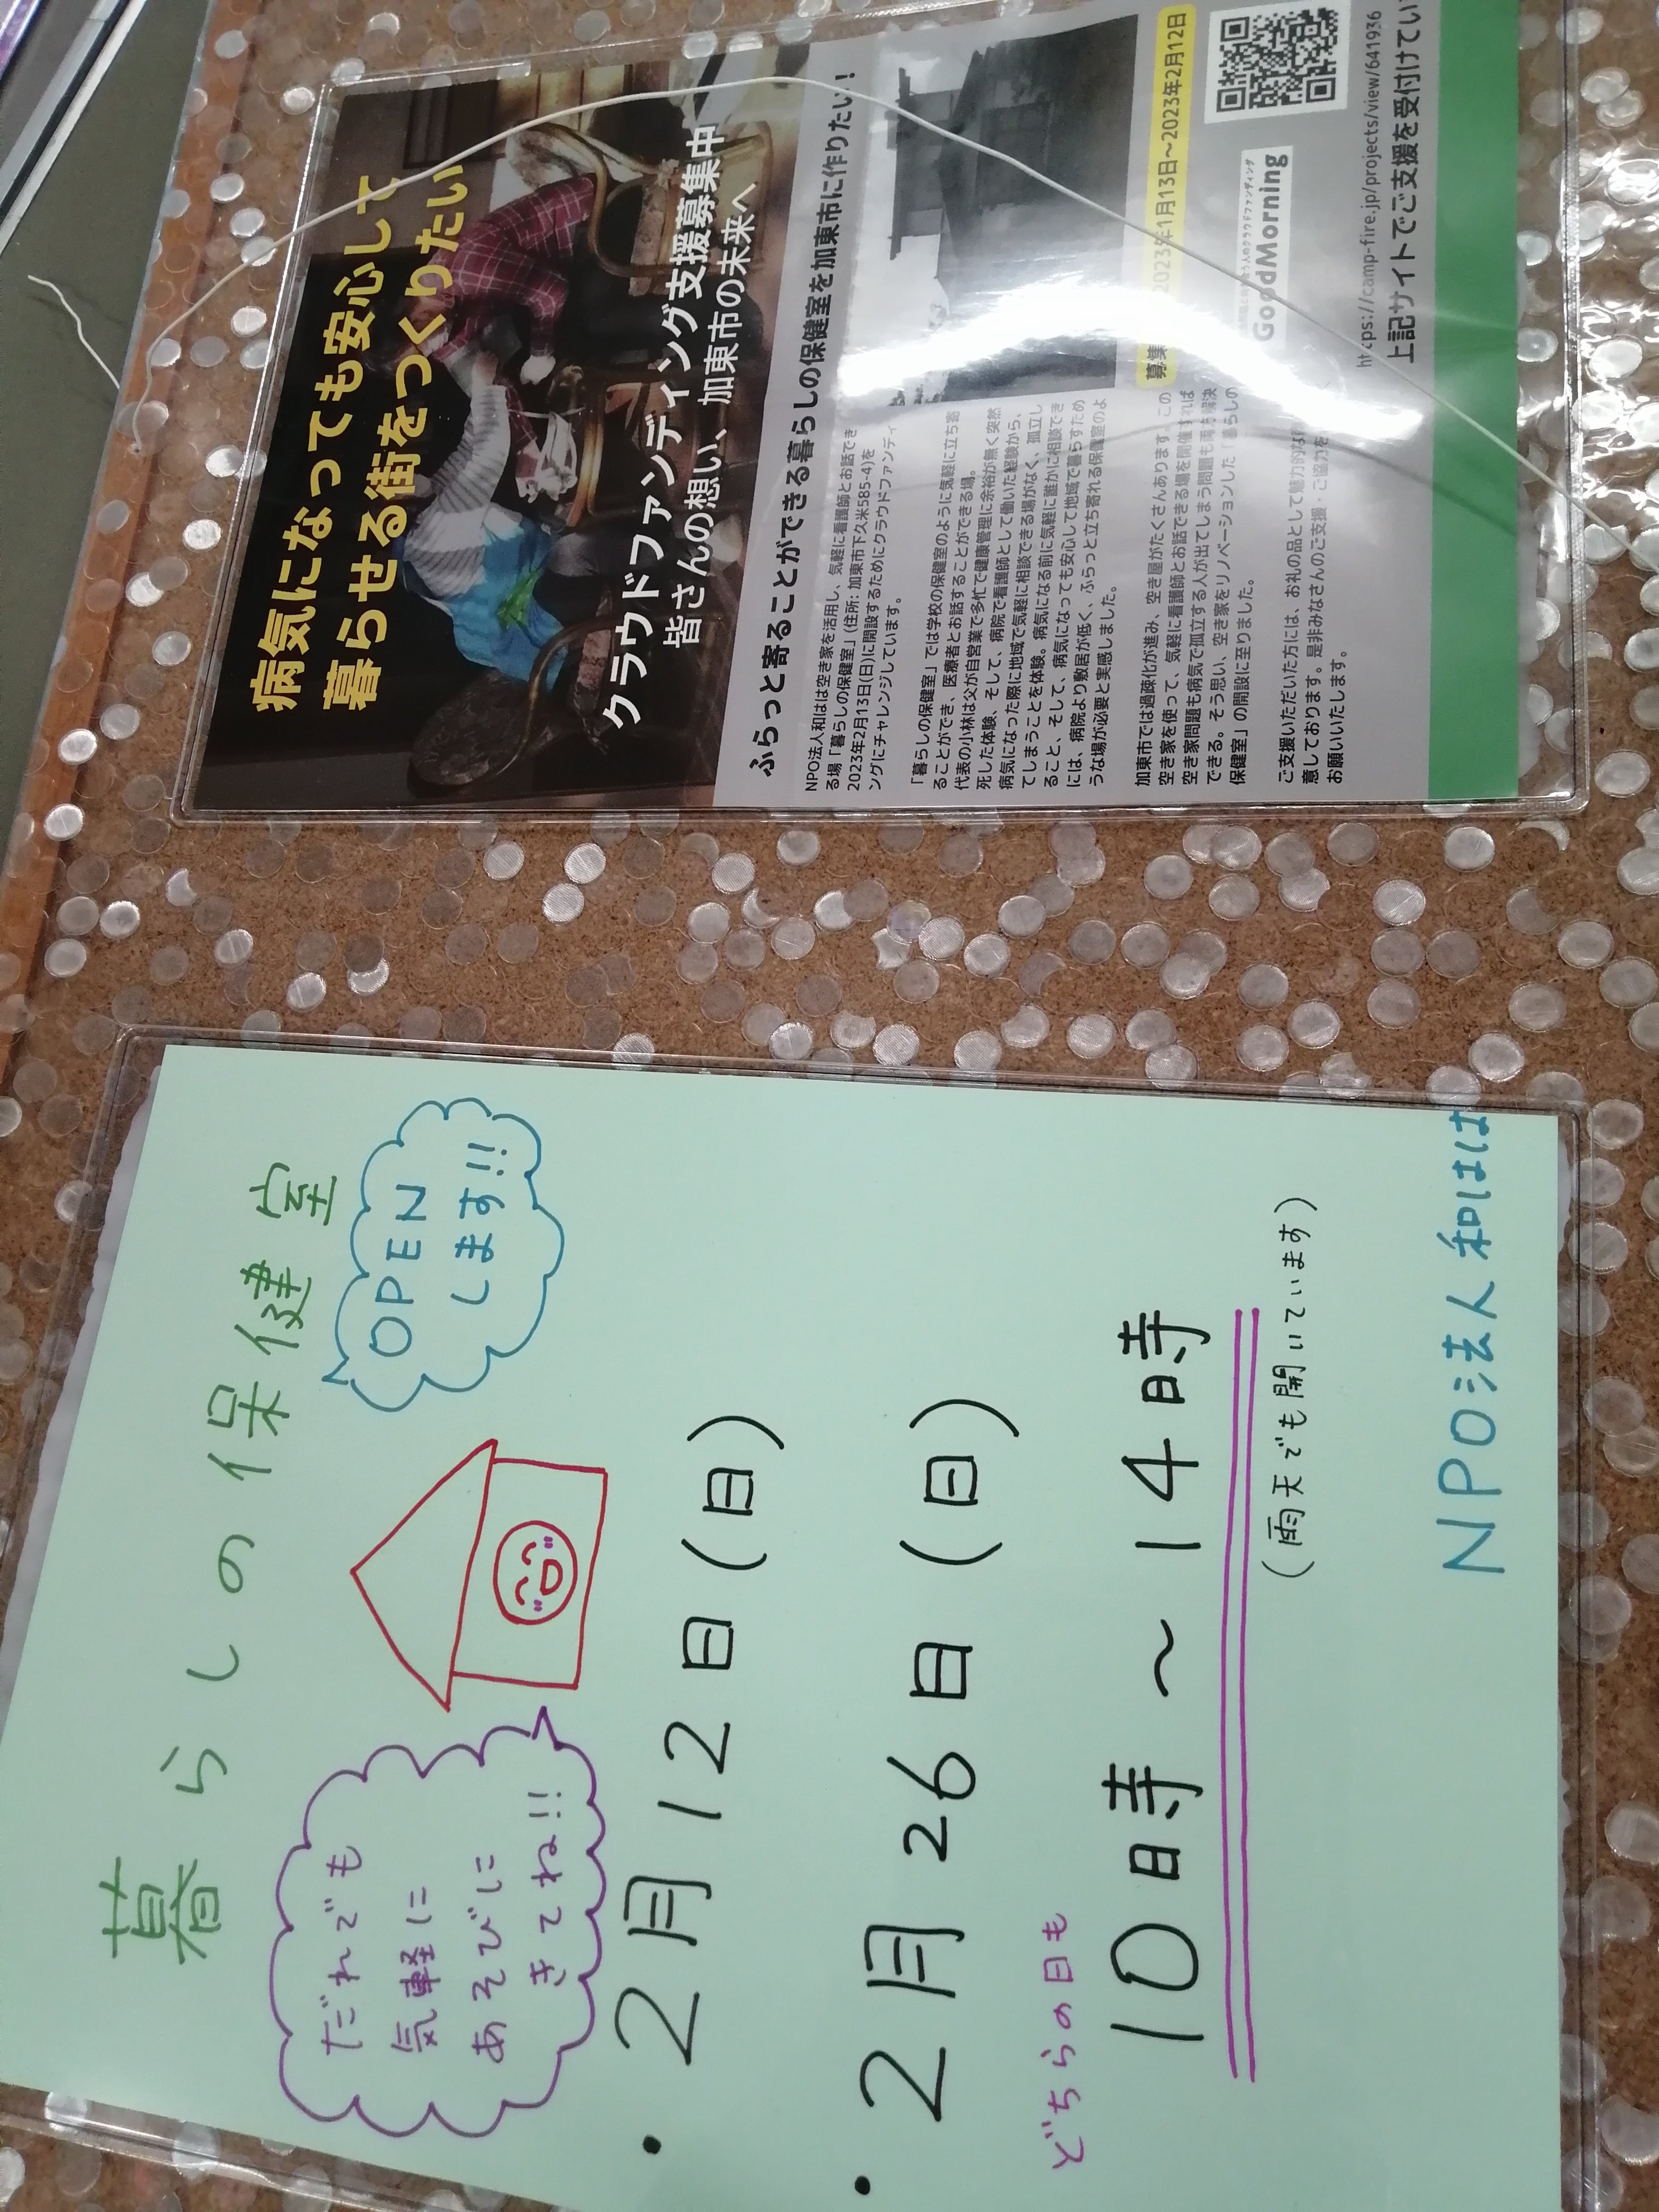 暮らしの保健室
OPEN
します!!
だれでも
気軽に
あそびに
きてね!!
・2月12日(日)
・2月26日(日)
どちらの日も
10時〜14時
(雨天でも開いています)
NPO法人 和はは
病気になっても安心して
暮らせる街をつくりたい
クラウドファンディング支援募集中
皆さんの想い、加東市の未来へ
ふらっと寄ることができる暮らしの保健室を加東市に作りたい!
NPO法人和はは空き家を活用し、気軽に看護師とお話でき
る場「暮らしの保健室」(住所: 加東市下久米585-4)を
2023年2月13日(日)に開設するためにクラウドファンディ
ングにチャレンジしています。
「暮らしの保健室」では学校の保健室のように気軽に立ち寄
ることができ、医療者とお話することができる場。
代表の小林は父が自営業で多忙で健康管理に余裕が無く突然
死した体験、そして、病院で看護師として働いた経験から、
病気になった際に地域で気軽に相談できる場がなく、孤立し
てしまうことを体験。病気になる前に気軽に誰かに相談でき
ること、そして、病気になっても安心して地域で暮らすため
には、病院より敷居が低く、ふらっと立ち寄れる保健室のよ
うな場が必要と実感しました。
加東市では過疎化が進み、空き屋がたくさんあります。この
空き家を使って、気軽に看護師とお話できる場を開催すれば
空き家問題も病気で孤立する人が出てしまう問題も両方解決
できる。そう思い、空き家をリノベーションした「暮らしの
保健室」の開設に至りました。
ご支援いただいた方には、お礼の品として魅力的な
意しております。是非みなさんのご支援・ご協力を
お願いいたします。
募集 2023年1月13日〜2023年2月12日
GoodMorning
https://camp-fire.jp/projects/view/641936
上記サイトでご支援を受付けてい